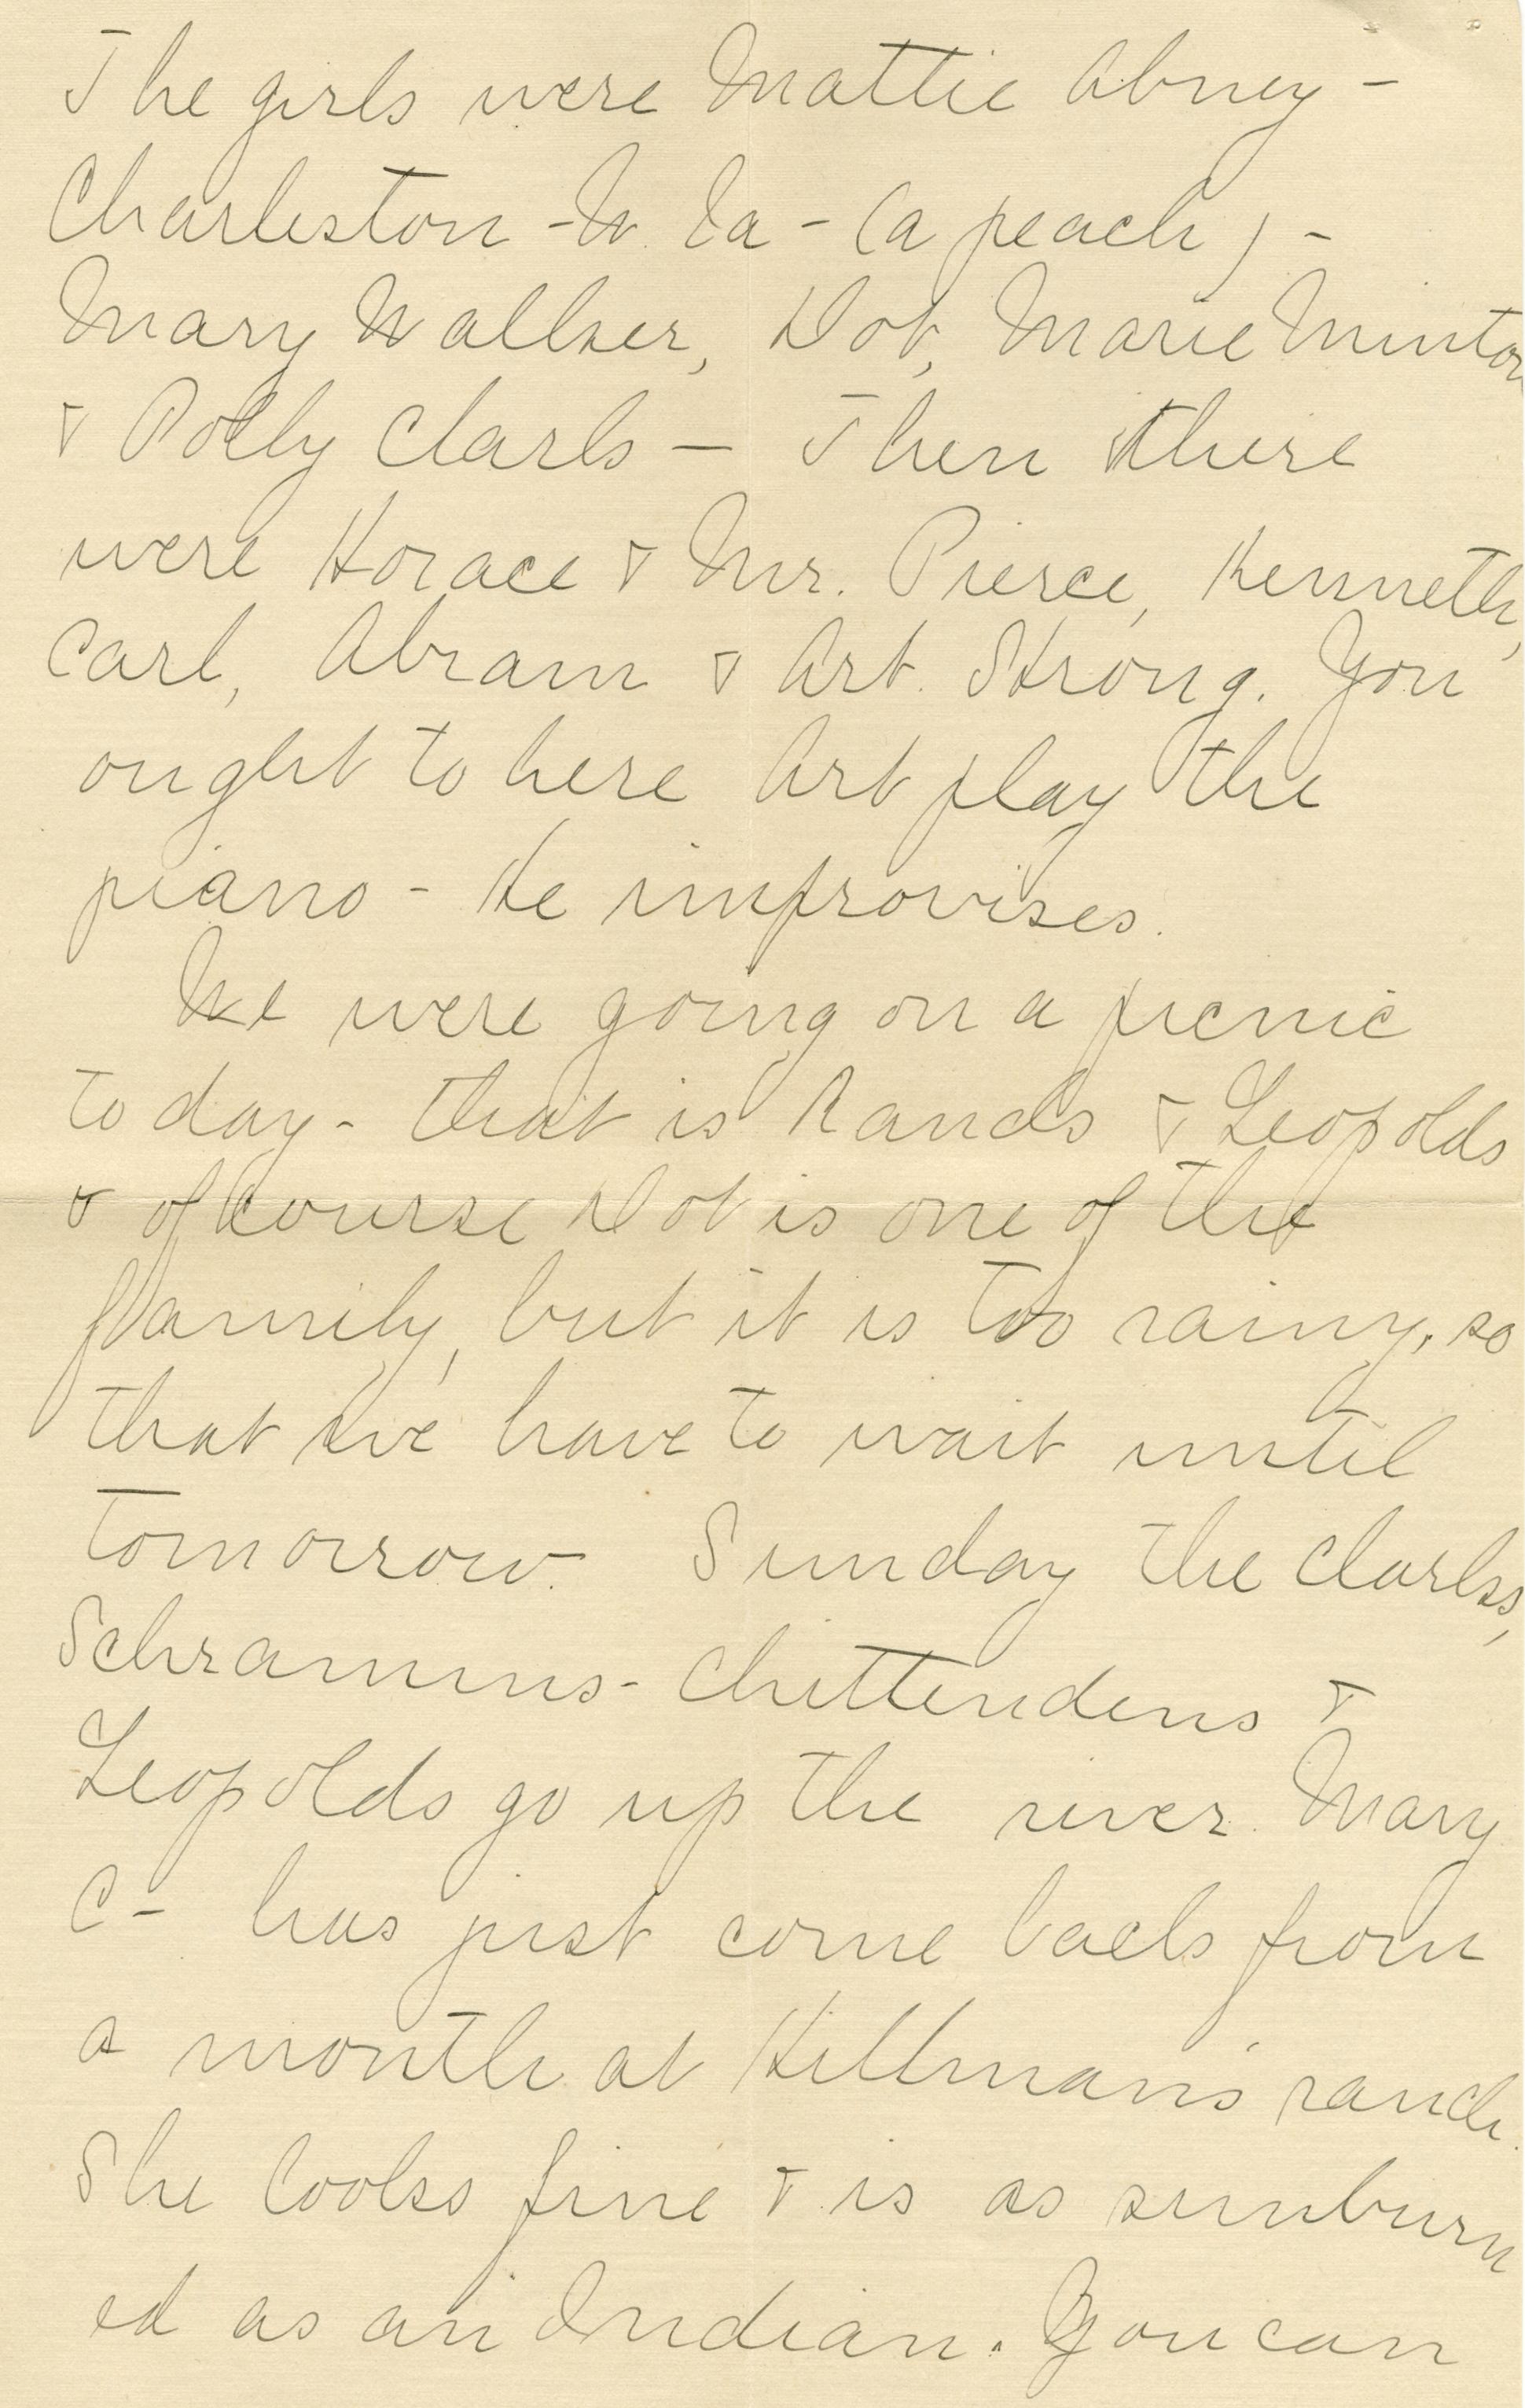 The girls were Mattie Abney -
Charleston - W. Va - (a peach) -
Mary Walker, Dot, Marie Minton
& Polly Clark — Then there
were Horace & Mr. Pierce, Kenneth,
Carl, Abram & Art. Strong. You
ought to here Art play the
piano - He improvises.
We were going on a picnic
today - that is Rands & Leopolds
& of course Dot is one of the
family, but it is too rainy, so
that we have to wait until
tomorrow. Sunday the Clarks,
Schramms - Chittendens &
Leopolds go up the river. Mary
C - has just come back from
a month at Hillman's ranch.
She looks fine & is as sunburn
ed as an Indian. You can